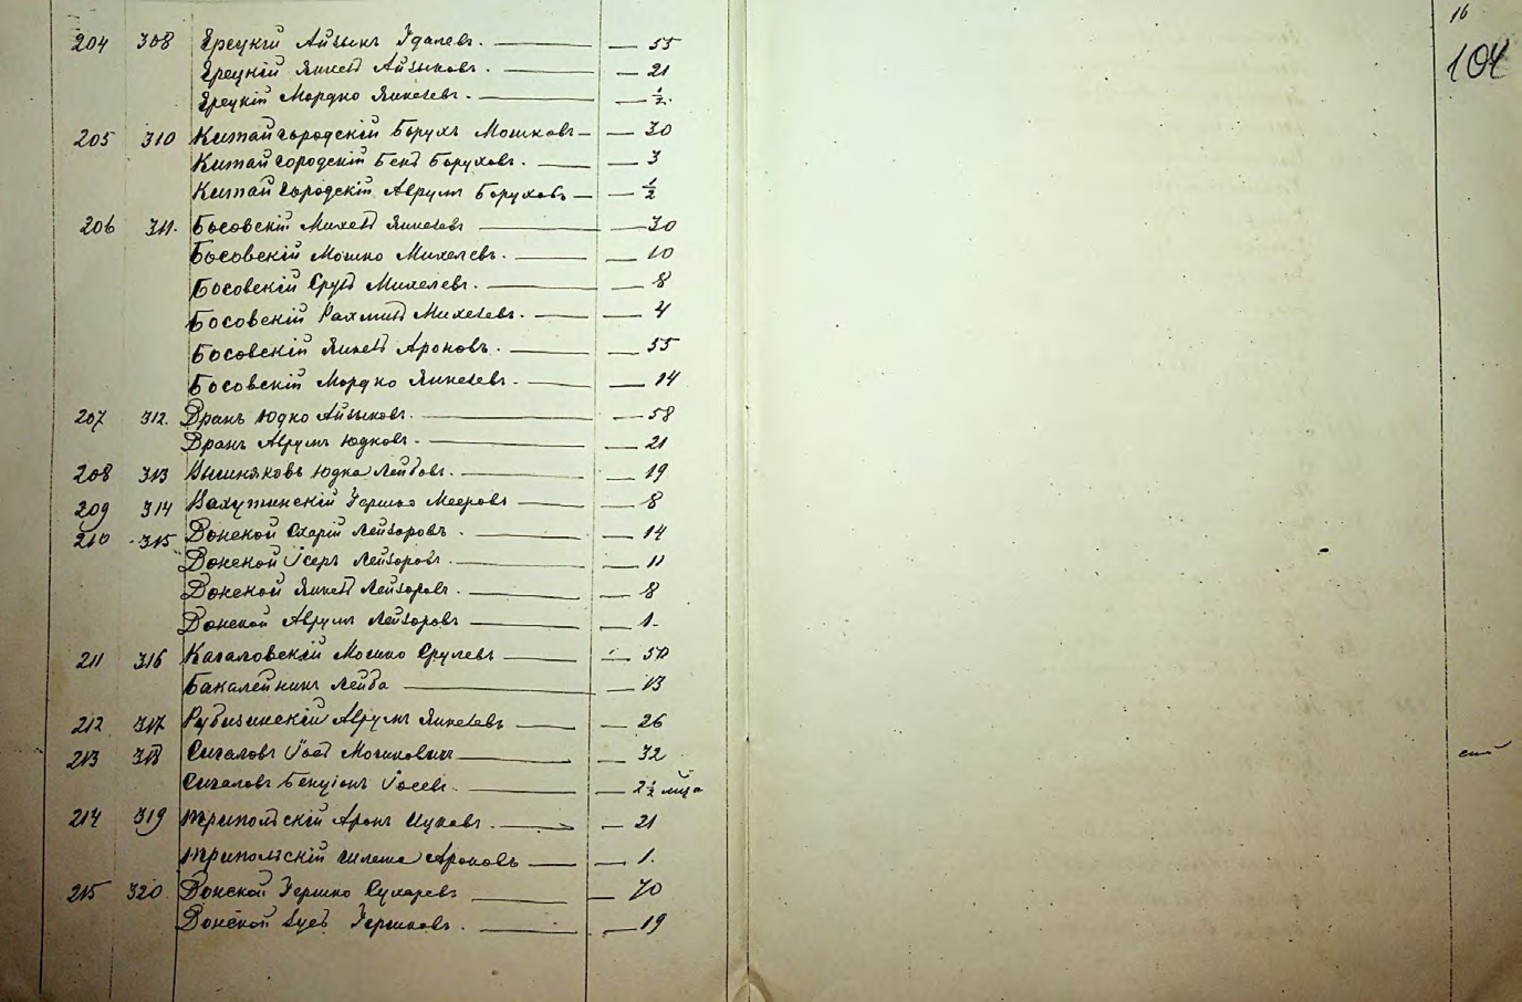 204 308 Ерецкій Айзыкъ Удалевъ. — 55
Ерецкій Янкель Айзыковъ. — 21
Ерецкій Мордко Янкелевъ. — 1/2.
205 310 Китайгородскій Борухъ Мошковъ — 30
Китайгородскій Бенъ Боруховъ. — 3
Китайгородскій Аврумъ Боруховъ — 1/2
206 311. Босовскій Михель Янкелевъ — 30
Босовскій Мошко Михелевъ. — 10
Босовскій Сруль Михелевъ. — 8
Босовскій Рахмиль Михелевъ. — 4
Босовскій Янкель Ароновъ. — 55
Босовскій Мордко Янкелевъ. — 14
207 312. Вранъ Юдко Айзыковъ. — 58
Вранъ Аврумъ Юдковъ. — 21
208 313 Вишняковъ Юдка Лейбовъ. — 19
209 314 Вахутинскій Гершко Мееровъ — 8
210 315 Донской Сахарій Лейзоровъ. — 14
Донской Іосеръ Лейзоровъ. — 11
Донской Янкель Лейзоровъ. — 8
Донской Аврумъ Лейзоровъ — 1.
211 316 Кагаловскій Мошко Срулевъ — 50
Бакалейникъ Лейба — 13
212 317 Рубижинскій Аврумъ Янкелевъ — 26
213 318 Сигаловъ Іосъ Мошковичъ — 32
Сигаловъ Бенціонъ Іосевъ. — 2 1/2 м-ца
214 319 Трипольскій Аронъ Ицковъ. — 21
Трипольскій Шлема Ароновъ — 1.
215 320 Донской Гершко Сухаревъ — 70
Донской Гершковъ. — 19
16
104